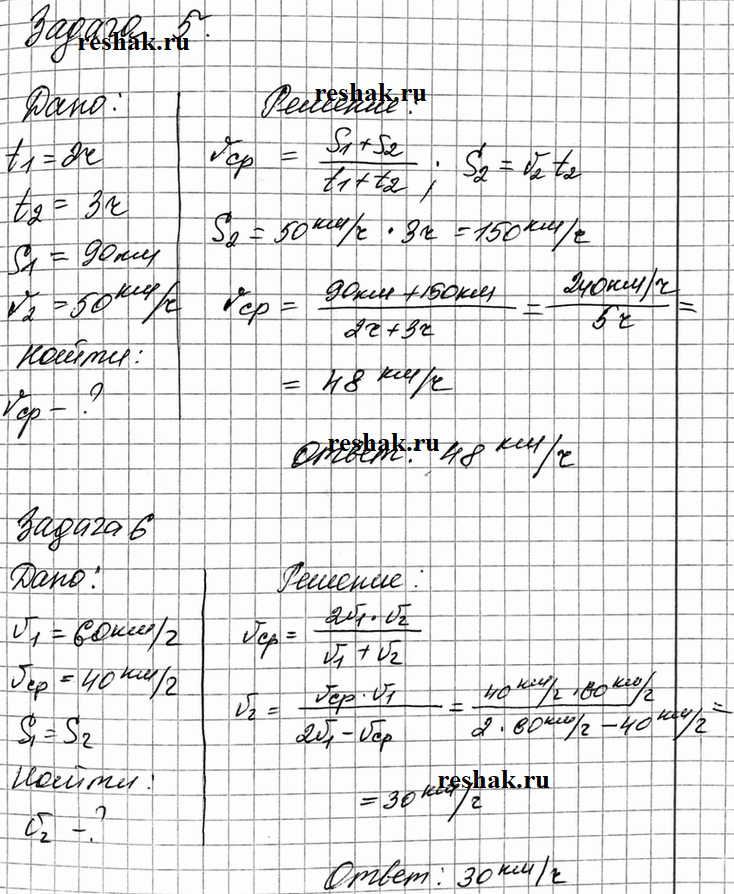 Задача 5.
reshak.ru
Дано:
t1 = 2ч
t2 = 3ч
S1 = 90км
v2 = 50 км/ч
Найти:
vср - ?
Решение:
reshak.ru
vср = (S1 + S2)/(t1 + t2) ; S2 = v2 t2
S2 = 50 км/ч · 3ч = 150 км/ч
vср = (90км + 150км)/(2ч + 3ч) = (240 км/ч)/(5ч) =
= 48 км/ч
reshak.ru
Ответ: 48 км/ч
Задача 6
Дано:
v1 = 60 км/ч
vср = 40 км/ч
S1 = S2
Найти:
v2 - ?
Решение:
vср = (2v1 · v2)/(v1 + v2)
v2 = (vср · v1)/(2v1 - vср) = (40 км/ч · 60 км/ч)/(2 · 60 км/ч - 40 км/ч) =
reshak.ru
= 30 км/ч
Ответ: 30 км/ч